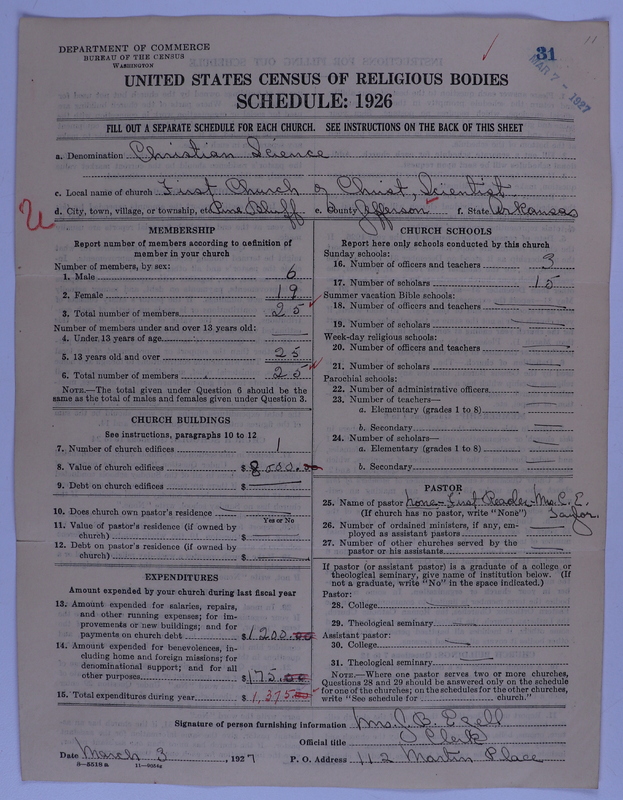 DEPARTMENT OF COMMERCE
BUREAU OF THE CENSUS
WASHINGTON
31
MAR 7 - 1927
11
UNITED STATES CENSUS OF RELIGIOUS BODIES
SCHEDULE: 1926
FILL OUT A SEPARATE SCHEDULE FOR EACH CHURCH. SEE INSTRUCTIONS ON THE BACK OF THIS SHEET
a. Denomination Christian Science
c. Local name of church First Church of Christ, Scientist
d. City, town, village, or township, etc Pine Bluff e. County Jefferson f. State Arkansas
MEMBERSHIP
Report number of members according to definition of
member in your church
Number of members, by sex:
1. Male 6
2. Female 19
3. Total number of members 25
Number of members under and over 13 years old:
4. Under 13 years of age
5. 13 years old and over 25
6. Total number of members 25
NOTE.—The total given under Question 6 should be
same as the total of males and females given under Question 3.
CHURCH BUILDINGS
See instructions, paragraphs 10 to 12
7. Number of church edifices 1
8. Value of church edifices $ 8000.00
9. Debt on church edifices $
10. Does church own pastor's residence
Yes or No
11. Value of pastor's residence (if owned by
church) $
12. Debt on pastor's residence (if owned by
church) $
EXPENDITURES
Amount expended by your church during last fiscal year
13. Amount expended for salaries, repairs,
and other running expenses; for im-
provements or new buildings; and for
payments on church debt $ 1200.00
14. Amount expended for benevolences, in-
cluding home and foreign missions; for
denominational support; and for all
other purposes $ 175.00
15. Total expenditures during year $ 1,375.00
CHURCH SCHOOLS
Report here only schools conducted by this church
Sunday schools:
16. Number of officers and teachers 3
17. Number of scholars 15
Summer vacation Bible schools:
18. Number of officers and teachers
19. Number of scholars
Week-day religious schools:
20. Number of officers and teachers
21. Number of scholars
Parochial schools:
22. Number of administrative officers
23. Number of teachers—
a. Elementary (grades 1 to 8)
b. Secondary
24. Number of scholars—
a. Elementary (grades 1 to 8)
b. Secondary
PASTOR
25. Name of pastor none - First Reader - Mrs. C. E.
(If church has no pastor, write "None") Taylor.
26. Number of ordained ministers, if any, em-
ployed as assistant pastors
27. Number of other churches served by the
pastor or his assistants
If pastor (or assistant pastor) is a graduate of a college or
theological seminary, give name of institution below. (If
not a graduate, write "No" in the space indicated.)
Pastor:
28. College
29. Theological seminary
Assistant pastor:
30. College
31. Theological seminary
NOTE.—Where one pastor serves two or more churches,
Questions 28 and 29 should be answered only on the schedule
for one of the churches; on the schedules for the other churches,
write "See schedule for church."
Signature of person furnishing information Mrs.
Official title Clerk
Date March 3, 1927 P. O. Address 112 Martin Place
8—5518 a